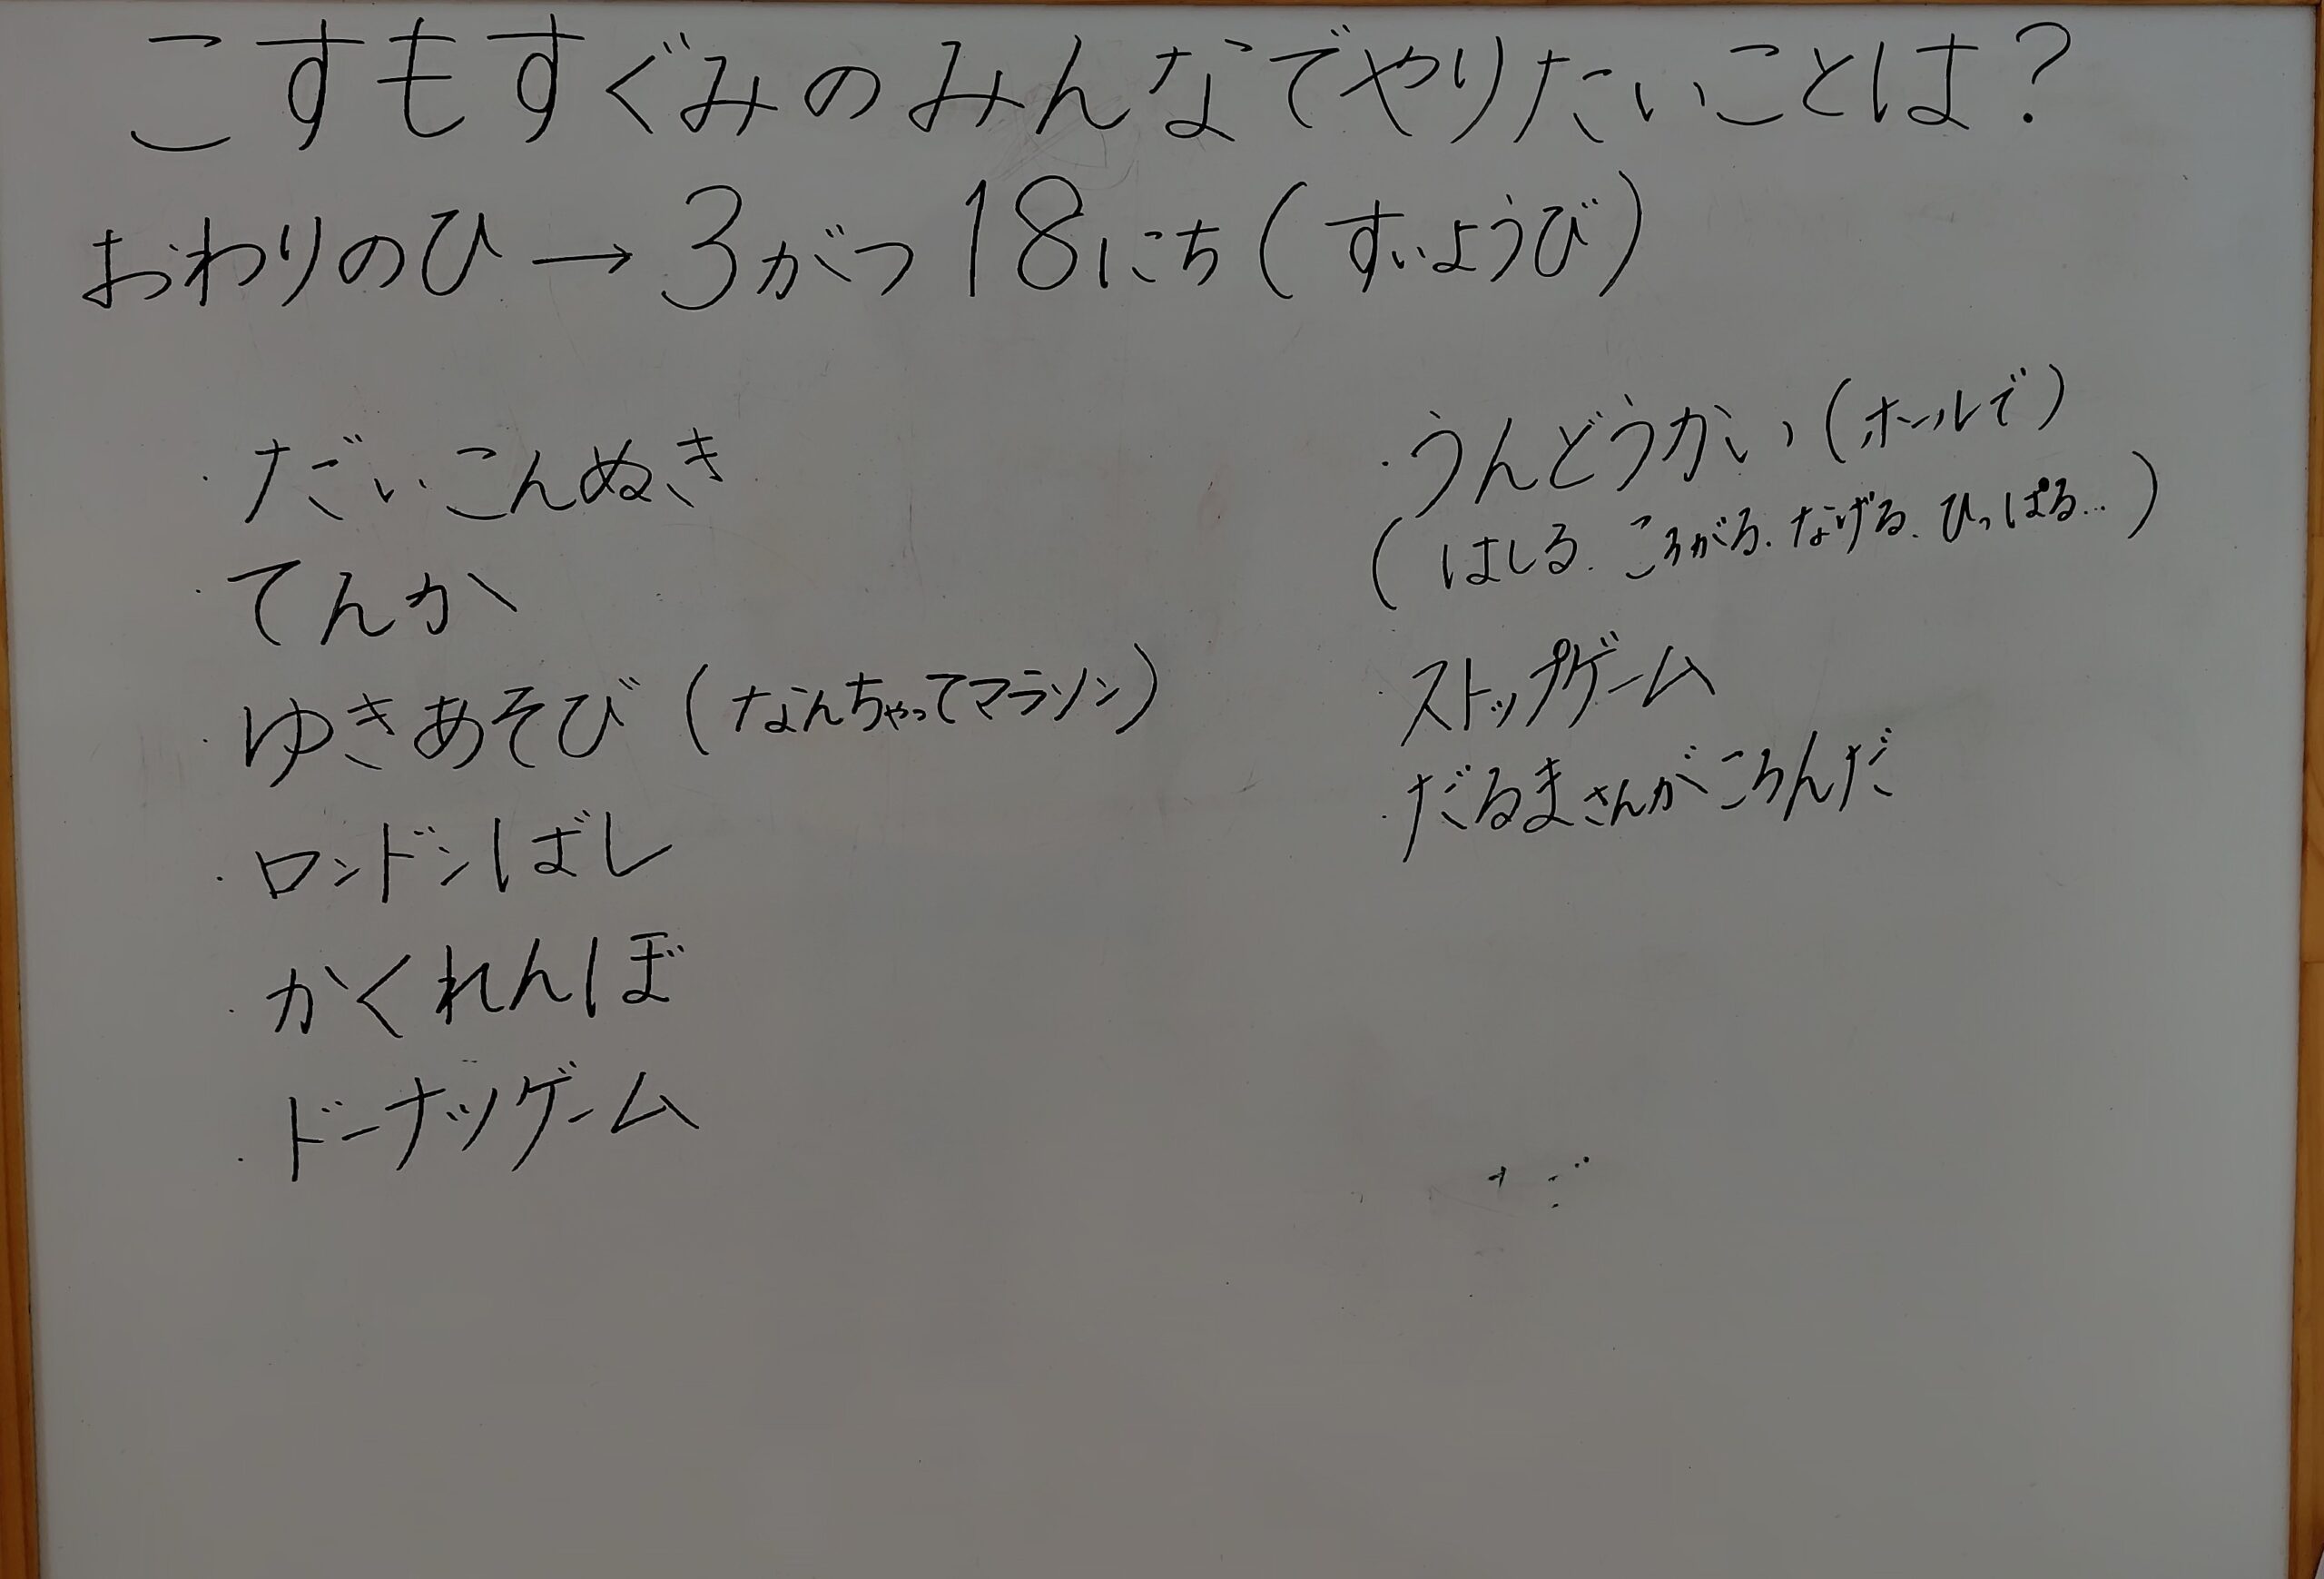 こすもすぐみのみんなでやりたいことは?
おわりのひ→3がつ18にち(すいようび)
・だいこんぬき
・てんか
・ゆきあそび(なんちゃってマラソン)
・ロンドンばし
・かくれんぼ
・ドーナツゲーム
・うんどうかい(ホールで)
(はしる、ころがる、なげる、ひっぱる…)
・ストップゲーム
・だるまさんがころんだ